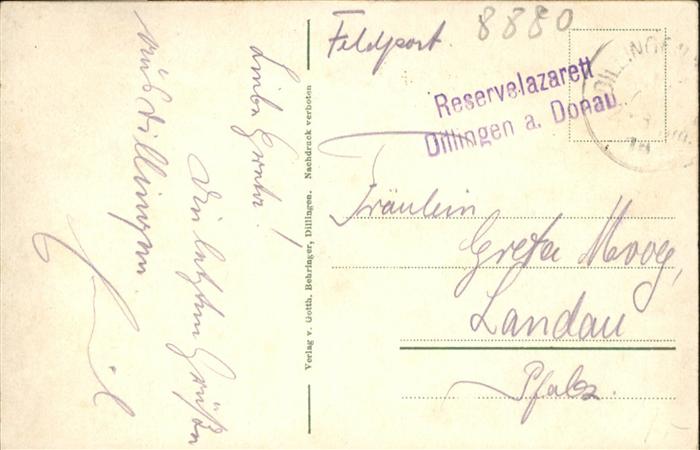 Feldpost.
8880
Reservelazarett
Dillingen a. Donau
DILLINGEN
Fräulein
Greta Moog,
Landau
Pfalz.
Verlag v. Gotth. Behringer, Dillingen. Nachdruck verboten
Liebe Greta!
Die letzten Grüße
aus Dillingen
Emil